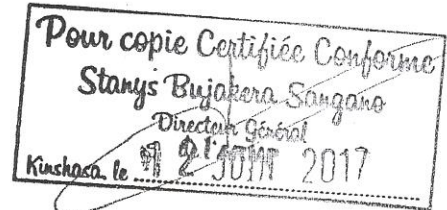 Pour copie Certifiée Conforme
Stanys Bujakera Sangano
Directeur Général
Kinshasa, le 2017